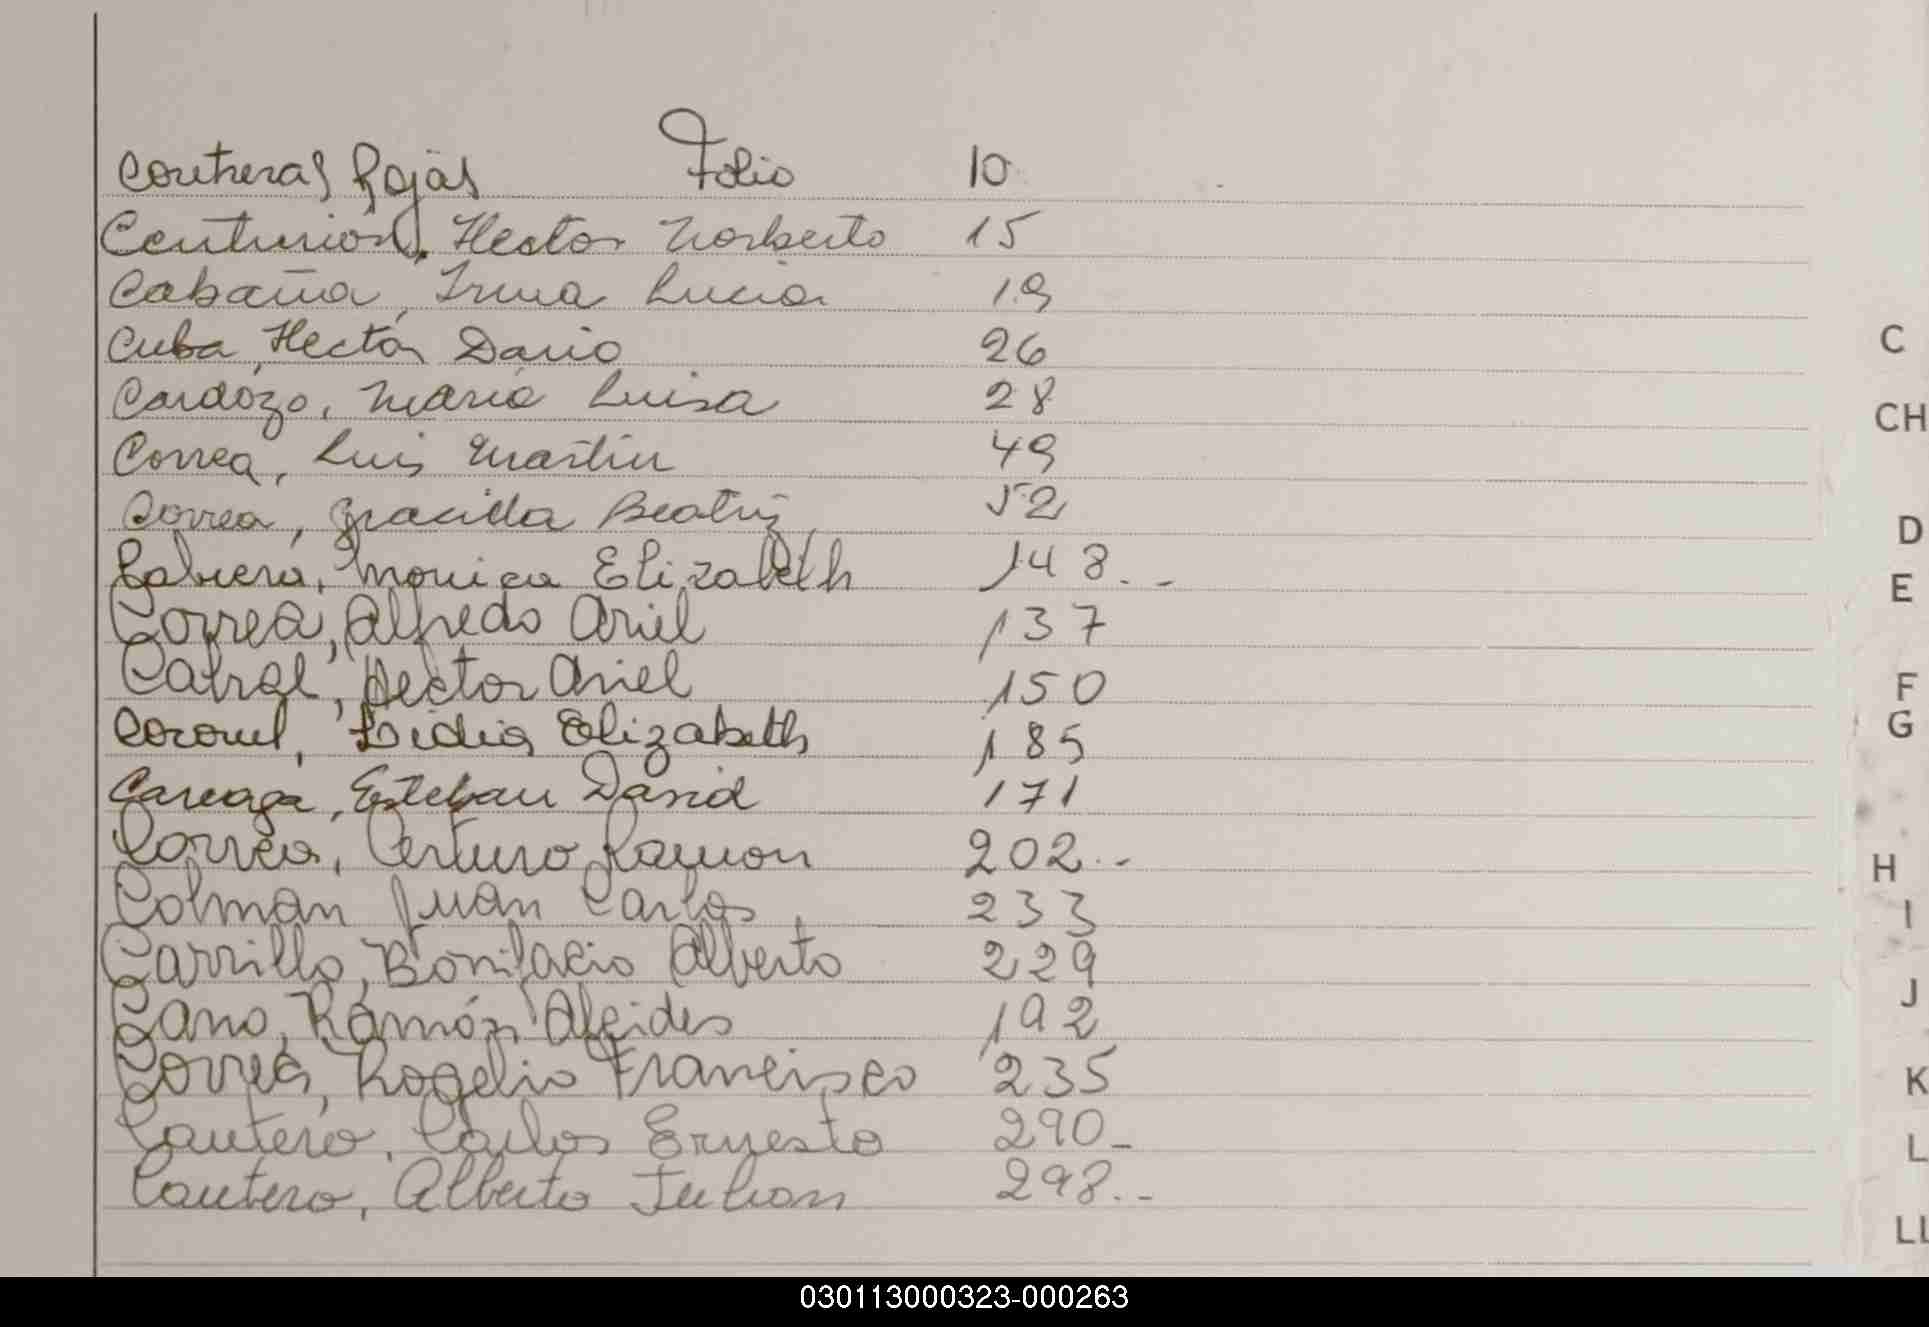 Contreras Rojas Folio 10
Centurión, Hector Norberto 15
Cabaña, Irma Lucia 19
Cuba, Hector Dario 26
Cardozo, Maria Luisa 28
Correa, Luis Martin 49
Correa, Graciela Beatriz 52
Cabrera, Monica Elizabeth 148..-
Correa, Alfredo Ariel 137
Cabral, Hector Ariel 150
Coronel, Lidia Elizabeth 185
Careaga, Esteban David 171
Correa, Arturo Ramon 202..-
Colman Juan Carlos 233
Carrillo, Bonifacio Alberto 229
Cano, Ramón Alcides 192
Correa, Rogelio Francisco 235
Cautero, Carlos Ernesto 290-
Cautero, Alberto Julian 298..-
C
CH
D
E
F
G
H
I
J
K
L
LL
030113000323-000263